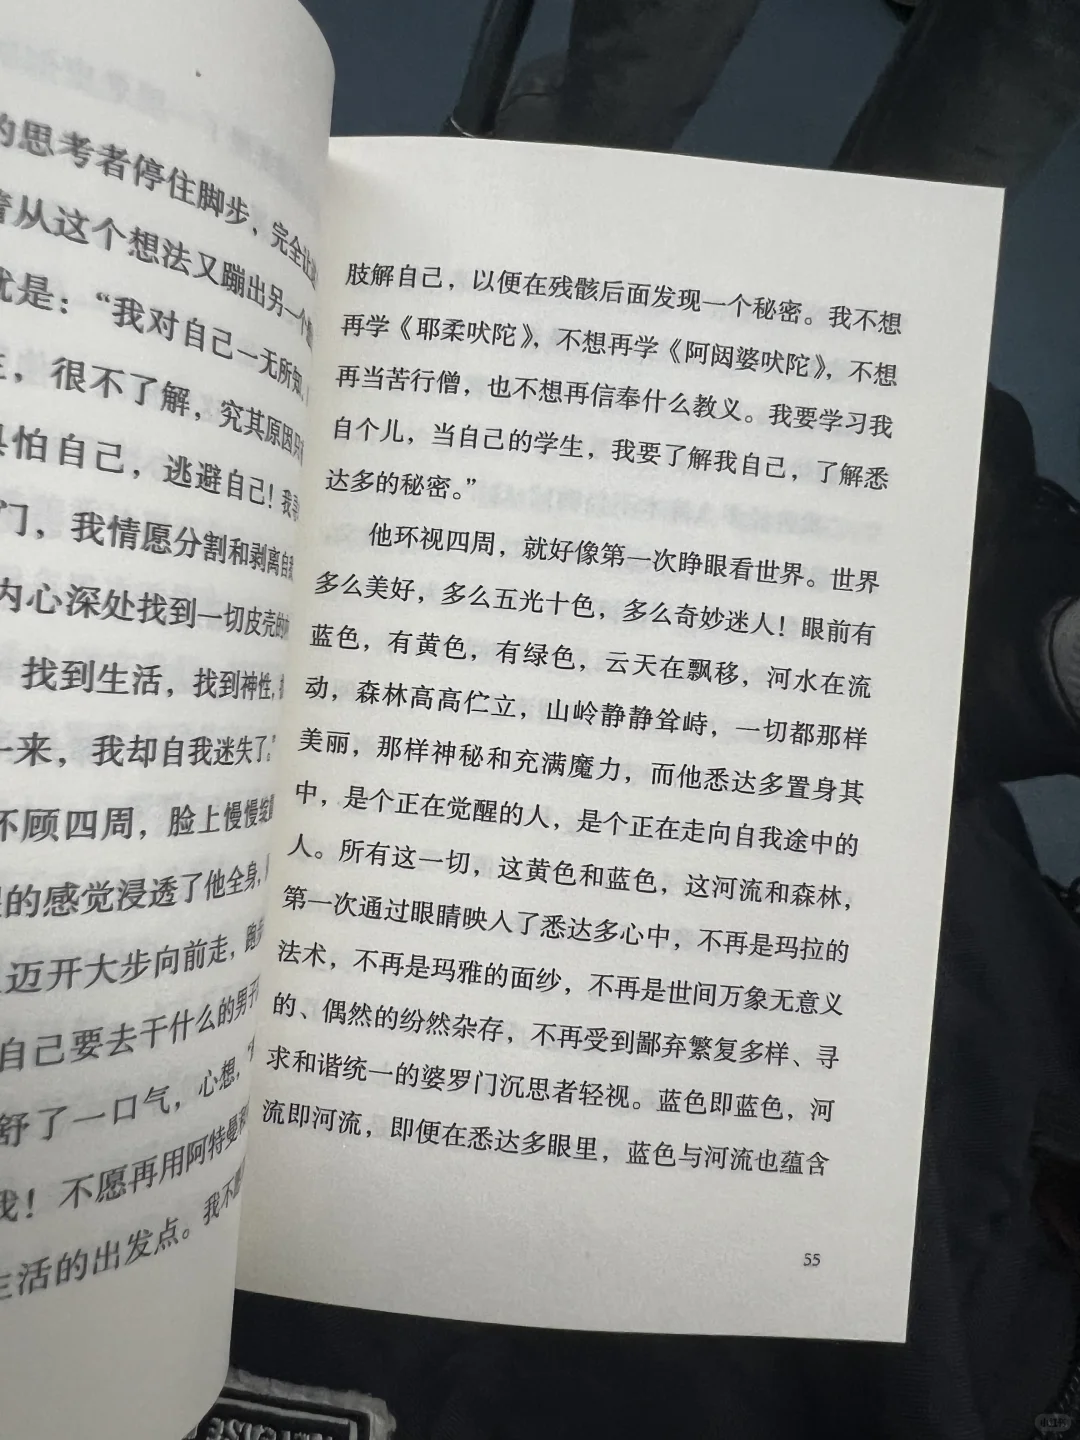 的思考者停住脚步、完全让
着从这个想法又蹦出另一个
就是：“我对自己一无所知，
很不了解，究其原因只
怕自己，逃避自己！我
门，我情愿分割和剥离自
内心深处找到一切皮壳的
找到生活，找到神性，
一来，我却自我迷失了。”
不顾四周，脸上慢慢绽
的感觉浸透了他全身，
迈开大步向前走，跑
自己要去干什么的男子
舒了一口气，心想，“
我！不愿再用阿特曼和
生活的出发点。我不愿
肢解自己，以便在残骸后面发现一个秘密。我不想
再学《耶柔吠陀》，不想再学《阿闼婆吠陀》，不想
再当苦行僧，也不想再信奉什么教义。我要学习我
自个儿，当自己的学生，我要了解我自己，了解悉
达多的秘密。”
他环视四周，就好像第一次睁眼看世界。世界
多么美好，多么五光十色，多么奇妙迷人！眼前有
蓝色，有黄色，有绿色，云天在飘移，河水在流
动，森林高高伫立，山岭静静耸峙，一切都那样
美丽，那样神秘和充满魔力，而他悉达多置身其
中，是个正在觉醒的人，是个正在走向自我途中的
人。所有这一切，这黄色和蓝色，这河流和森林，
第一次通过眼睛映入了悉达多心中，不再是玛拉的
法术，不再是玛雅的面纱，不再是世间万象无意义
的、偶然的纷然杂存，不再受到鄙弃繁复多样、寻
求和谐统一的婆罗门沉思者轻视。蓝色即蓝色，河
流即河流，即便在悉达多眼里，蓝色与河流也蕴含
55
小红书